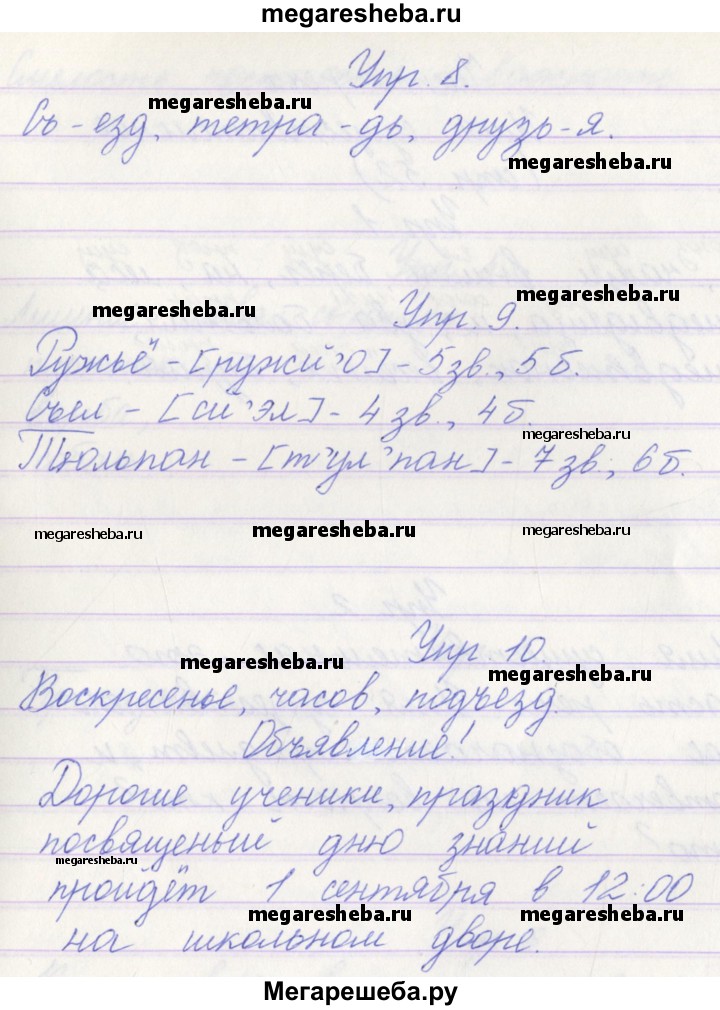 megaresheba.ru
Упр. 8.
megaresheba.ru
Съ-езд, тетра-дь, друзь-я.
megaresheba.ru
megaresheba.ru
megaresheba.ru
Упр. 9.
Ружьё - [ружй'О] - 5 зв., 5 б.
Съел - [сй'эл] - 4 зв., 4 б.
megaresheba.ru
Тюльпан - [т'ул'пан] - 7 зв., 6 б.
megaresheba.ru megaresheba.ru megaresheba.ru
Упр. 10.
megaresheba.ru
megaresheba.ru
Воскресенье, часов, подъезд.
Объявление!
Дорогие ученики, праздник
посвященый дню знаний
megaresheba.ru
пройдёт 1 сентября в 12:00
megaresheba.ru megaresheba.ru
на школьном дворе.
Мегарешеба.ру